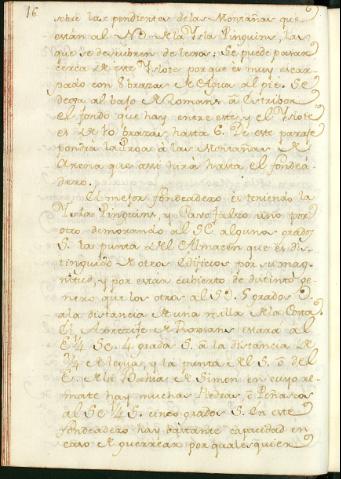 16
sobre las pendientes de las Montañas que
están al N.O. de la Ysla Pinguins, las
que se descubren de lexos; Se puede pasar
cerca de este Yslote porque es muy escar
pado con 8 brazas de Agua al pie. Se
dexa al baxo Romans à Estribor
el fondo que hay entre este, y el Yslote
es de 10 brazas, hasta 6. De este parage
pondra la Proa à las Montañas de
Arena que assi hirà hasta el fondea
dero.
El mejor fondeadero es teniendo la
Ysla Pinguins, y uno por
otro demorando al SE algunos grados
S. la punta del Almazen que es dis
tinguido de otros Edificios por su mag
nitud, y por estàn cubierto de distinto ge
nero que los otros al SO. 5 grados S.
a la distancia de una milla de la Costa.
El Arrecife de Romans estarà al
E 1/4 SE. 4 grados S. à la distancia de
3/4 de legua, y la punta del S. ò del
E. de la Bahia de Simon en cuyo re
mate hay muchas Piedras, ò Peñascos
al SE 1/4 S. cinco grados S. En este
fondeadero hay bastante capacidad en
caso de guerrear por qualesquier